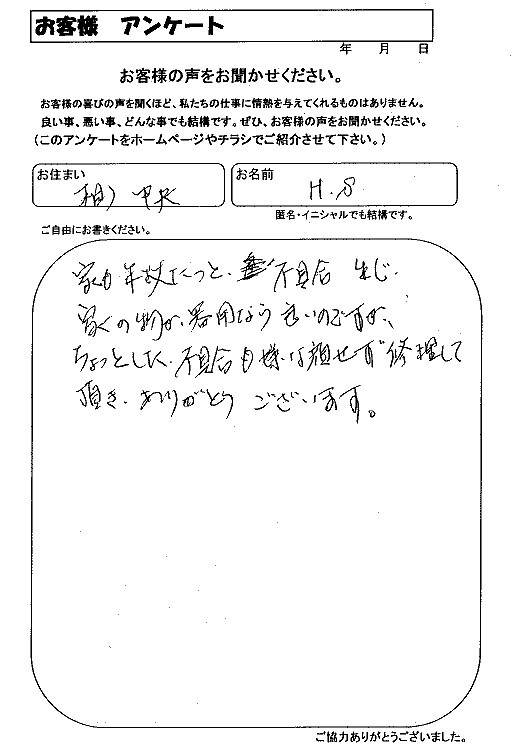 お客様 アンケート
年 月 日
お客様の声をお聞かせください。
お客様の喜びの声を聞くほど、私たちの仕事に情熱を与えてくれるものはありません。
良い事、悪い事、どんな事でも結構です。ぜひ、お客様の声をお聞かせください。
(このアンケートをホームページやチラシでご紹介させて下さい。)
お住まい
中央
お名前
H.S
匿名・イニシャルでも結構です。
ご自由にお書きください。
家も年数たつと、不具合生じ、
家の物が、器用なら良いのですが、
ちょっとした、不具合も嫌な顔せず修理して
頂き、ありがとうございます。
ご協力ありがとうございました。